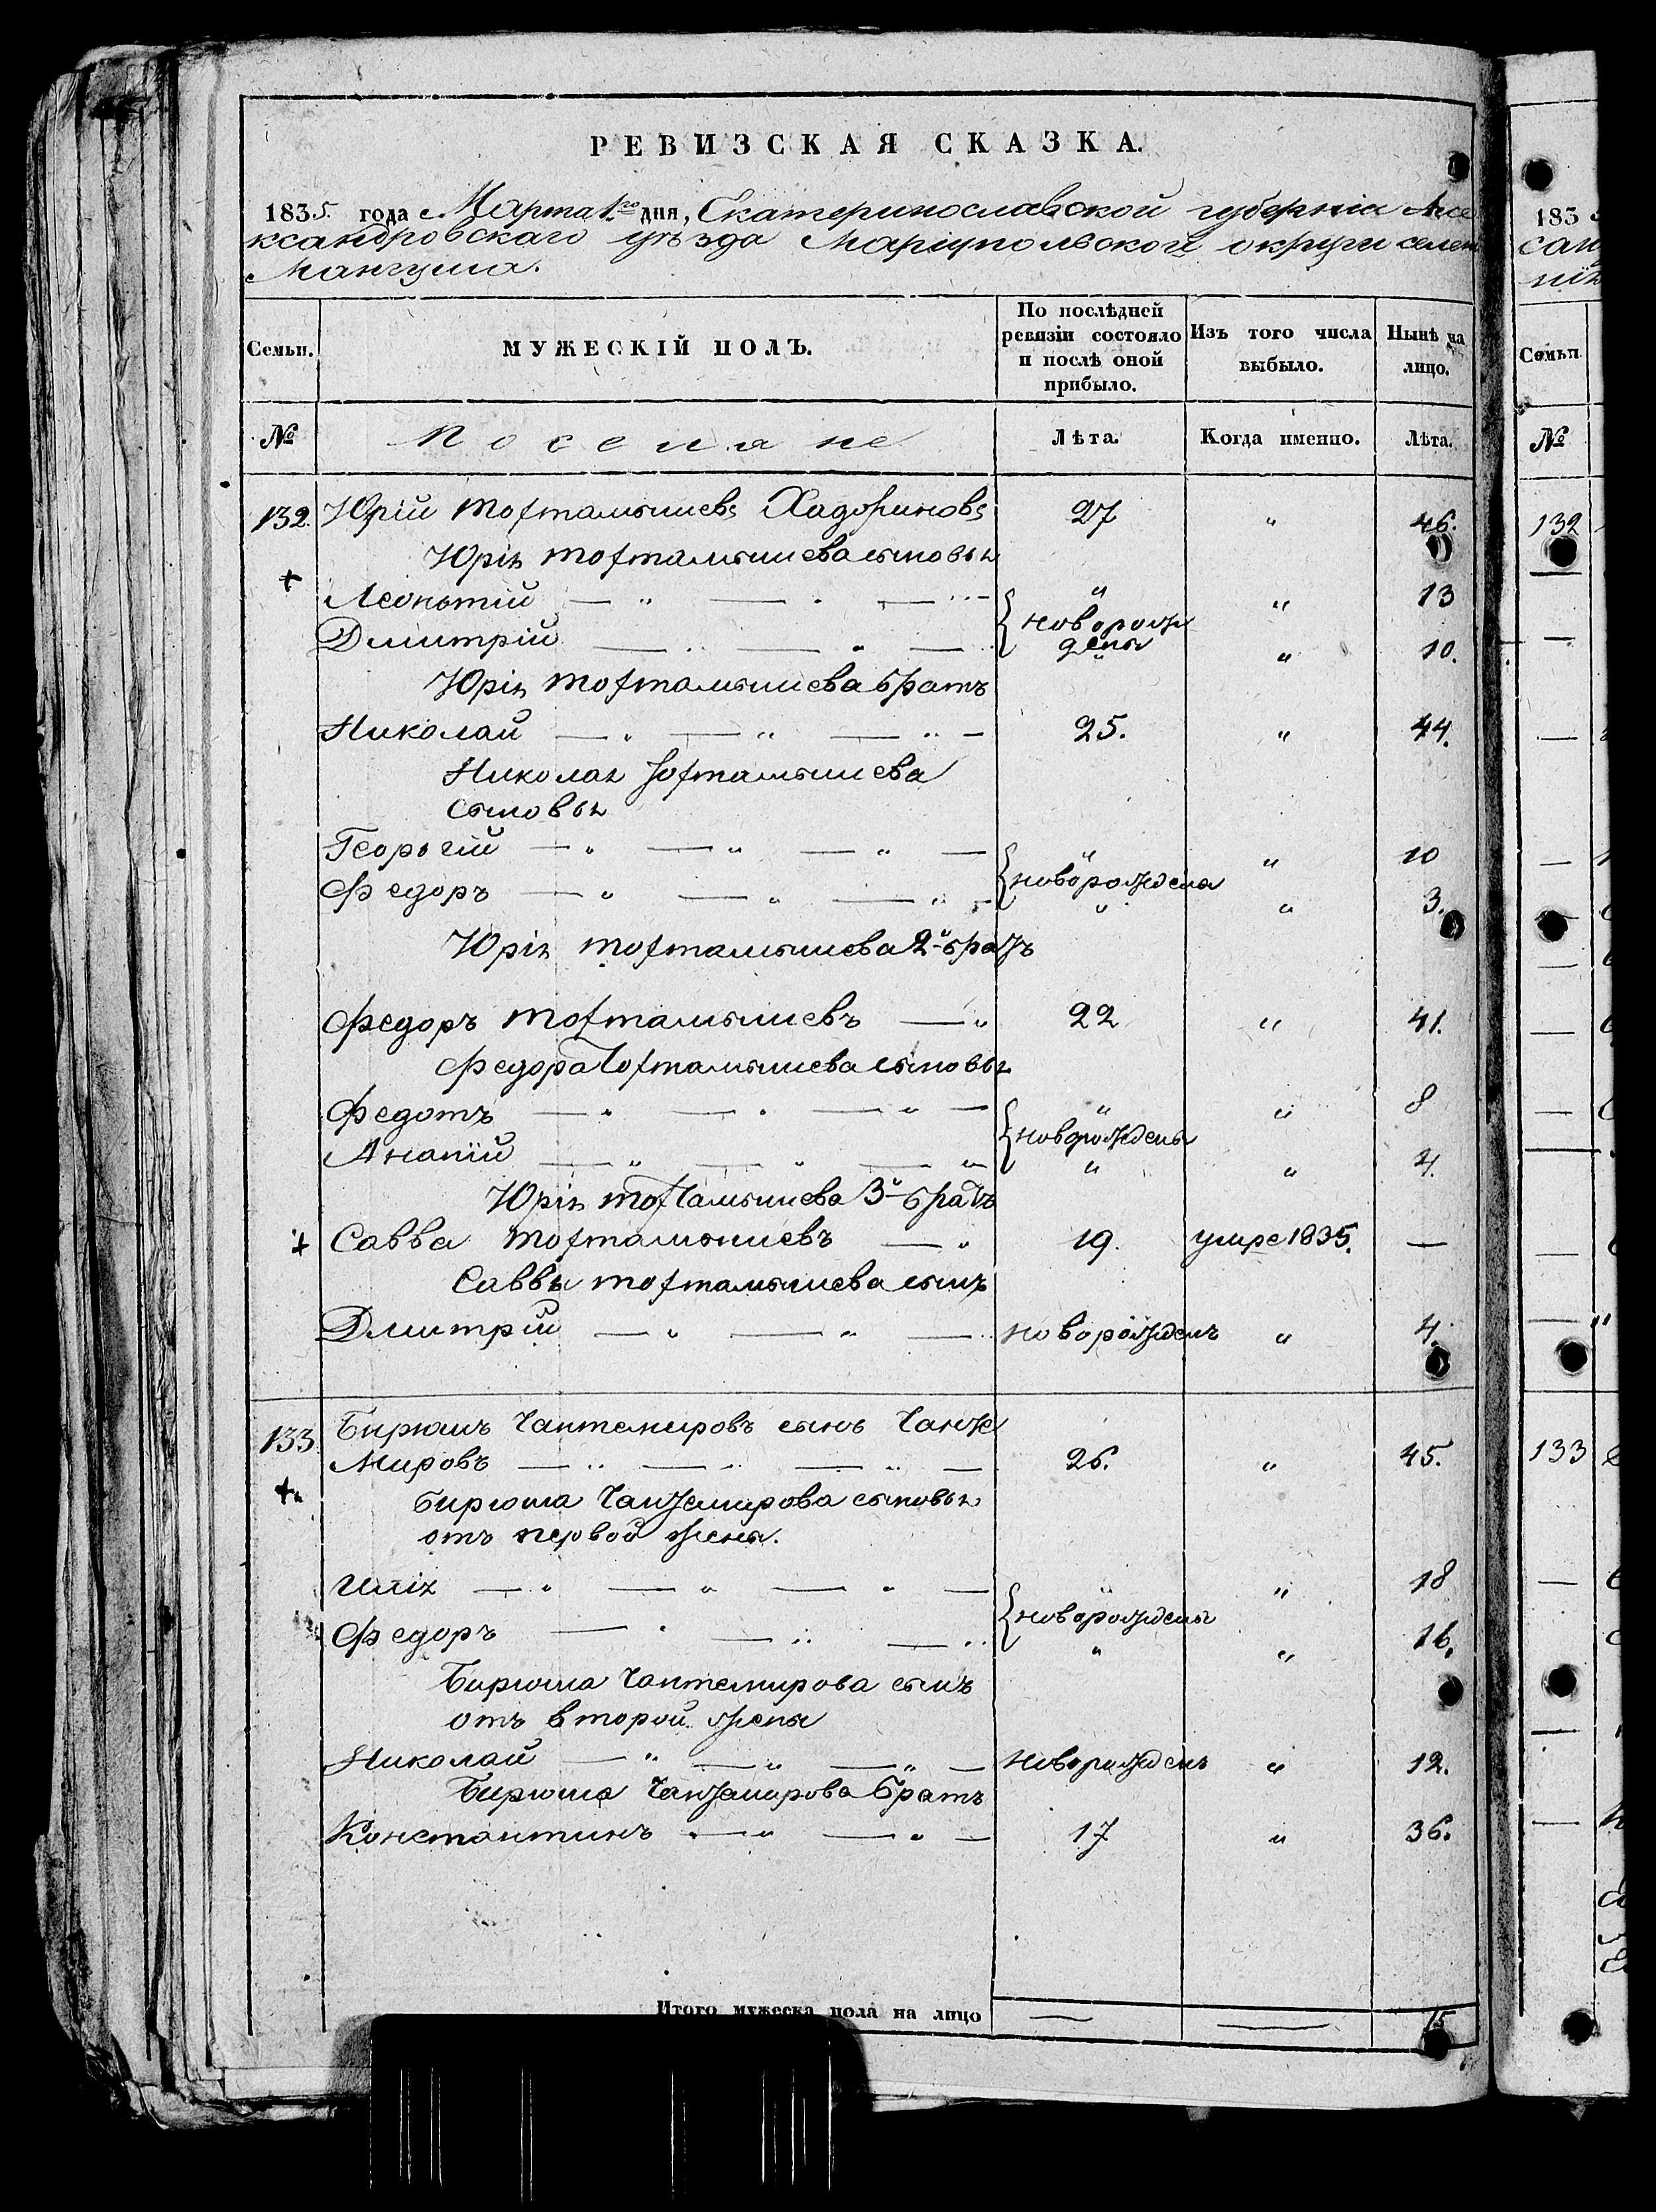 РЕВИЗСКАЯ СКАЗКА.
1835. года Марта 1.го дня, Екатеринославской губерніи Але
ксандровскаго уѣзда Маріупольской округи селен
Мангуша.
Семьи.
МУЖЕСКІЙ ПОЛЪ.
По послѣдней ревизіи состояло и послѣ оной прибыло.
Изъ того числа выбыло.
Нынѣ на лицо.
№ Поселяне Лѣта. Когда именно. Лѣта.
132. Юрій Тохтамышевъ Хаджиновъ 27 " 46.
Юрія Тохтамышева сыновья
Леонтій — " — " — " — " " 13
новорож
Дмитрій — " — " — дены " 10.
Юрія Тохтамышева братъ
Николай — " — " — " — 25. " 44.
Николая Тохтамышева
сыновья
Георгій — " — " — " — " " 10
новорождены
Федоръ — " — " — " — " " 3.
Юрія Тохтамышева 2й братъ
Федоръ Тохтамышевъ — " 22 " 41.
Федора Тохтамышева сыновья
Федотъ — " — " — " — " " 8
новорождены
Ананій — " — " — " " " 4.
Юрія Тохтамышева 3й братъ
Савва Тохтамышевъ — " 19. умре 1835. —
Саввы Тохтамышева сынъ
Дмитрій — " — " — новорожденъ " 4.
133 Бирюшъ Чантемировъ сынъ Чанте
мировъ — " — " — " — 26. " 45.
Бирюша Чантемирова сыновья
отъ первой жены.
Илія — " — " — " — " " 18
новорождены
Федоръ — " — " — " " " 16.
Бирюша Чантемирова сынъ
отъ второй жены
Николай — " — " — " — новорожденъ " 12.
Бирюша Чантемирова братъ
Константинъ — " — " — 17 " 36.
Итого мужеска пола на лицо — — 15
183
Семьи
№
132
133